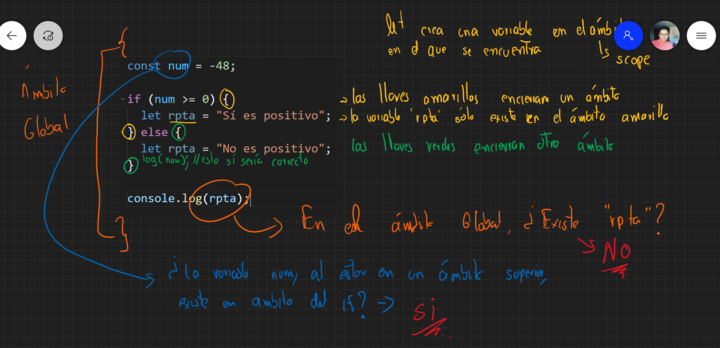 let crea una variable en el ámbito
en el que se encuentra
↳ scope
{
const num = -48;
Ámbito
Global
if (num >= 0) {
let rpta = "Sí es positivo";
} else {
let rpta = "No es positivo";
log(num); //Esto si sería correcto
}
console.log(rpta);
}
→ las llaves amarillas encierran un ámbito
→ la variable 'rpta' sólo existe en el ámbito amarillo
las llaves verdes encierran otro ámbito
→ En el ámbito Global, ¿Existe "rpta"?
→ NO
→ ¿La variable num, al estar en un ámbito superior,
existe en ambito del if? → si